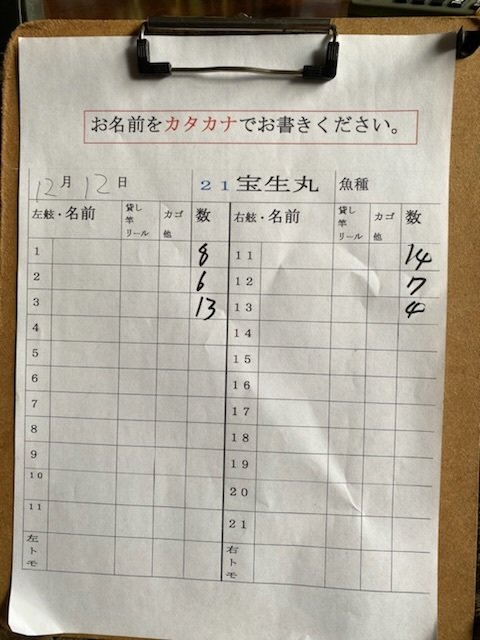 お名前をカタカナでお書きください。
12月12日 21宝生丸 魚種
左舷・名前 貸し竿リール カゴ他 数 右舷・名前 貸し竿リール カゴ他 数
1 8 11 14
2 6 12 7
3 13 13 4
4 14
5 15
6 16
7 17
8 18
9 19
10 20
11 21
左トモ 右トモ